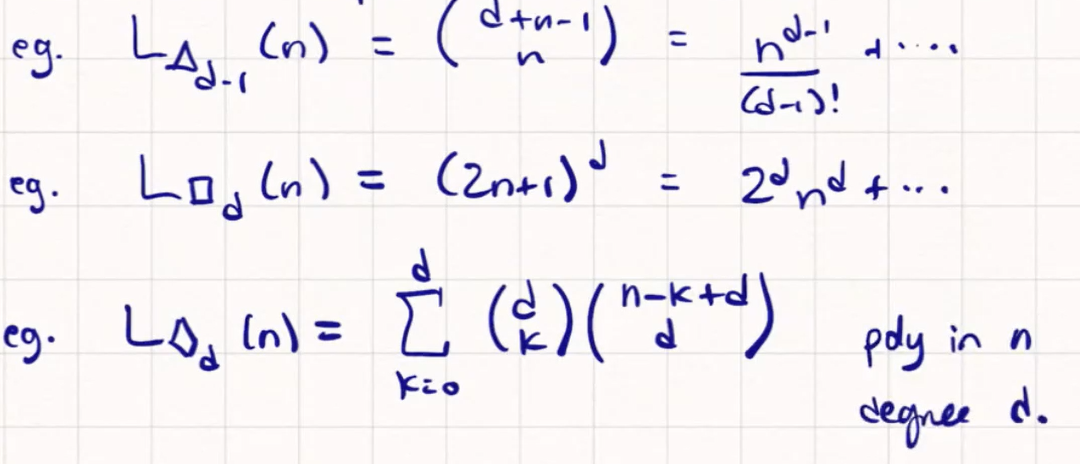 eg. L_{Δ_{d-1}} (n) = \binom{d+n-1}{n} = \frac{n^{d-1}}{(d-1)!} + ....
eg. L_{□_d} (n) = (2n+1)^d = 2^d n^d + ...
eg. L_{◇_d} (n) = \sum_{k=0}^{d} \binom{d}{k} \binom{n-k+d}{d} poly in n
degree d.